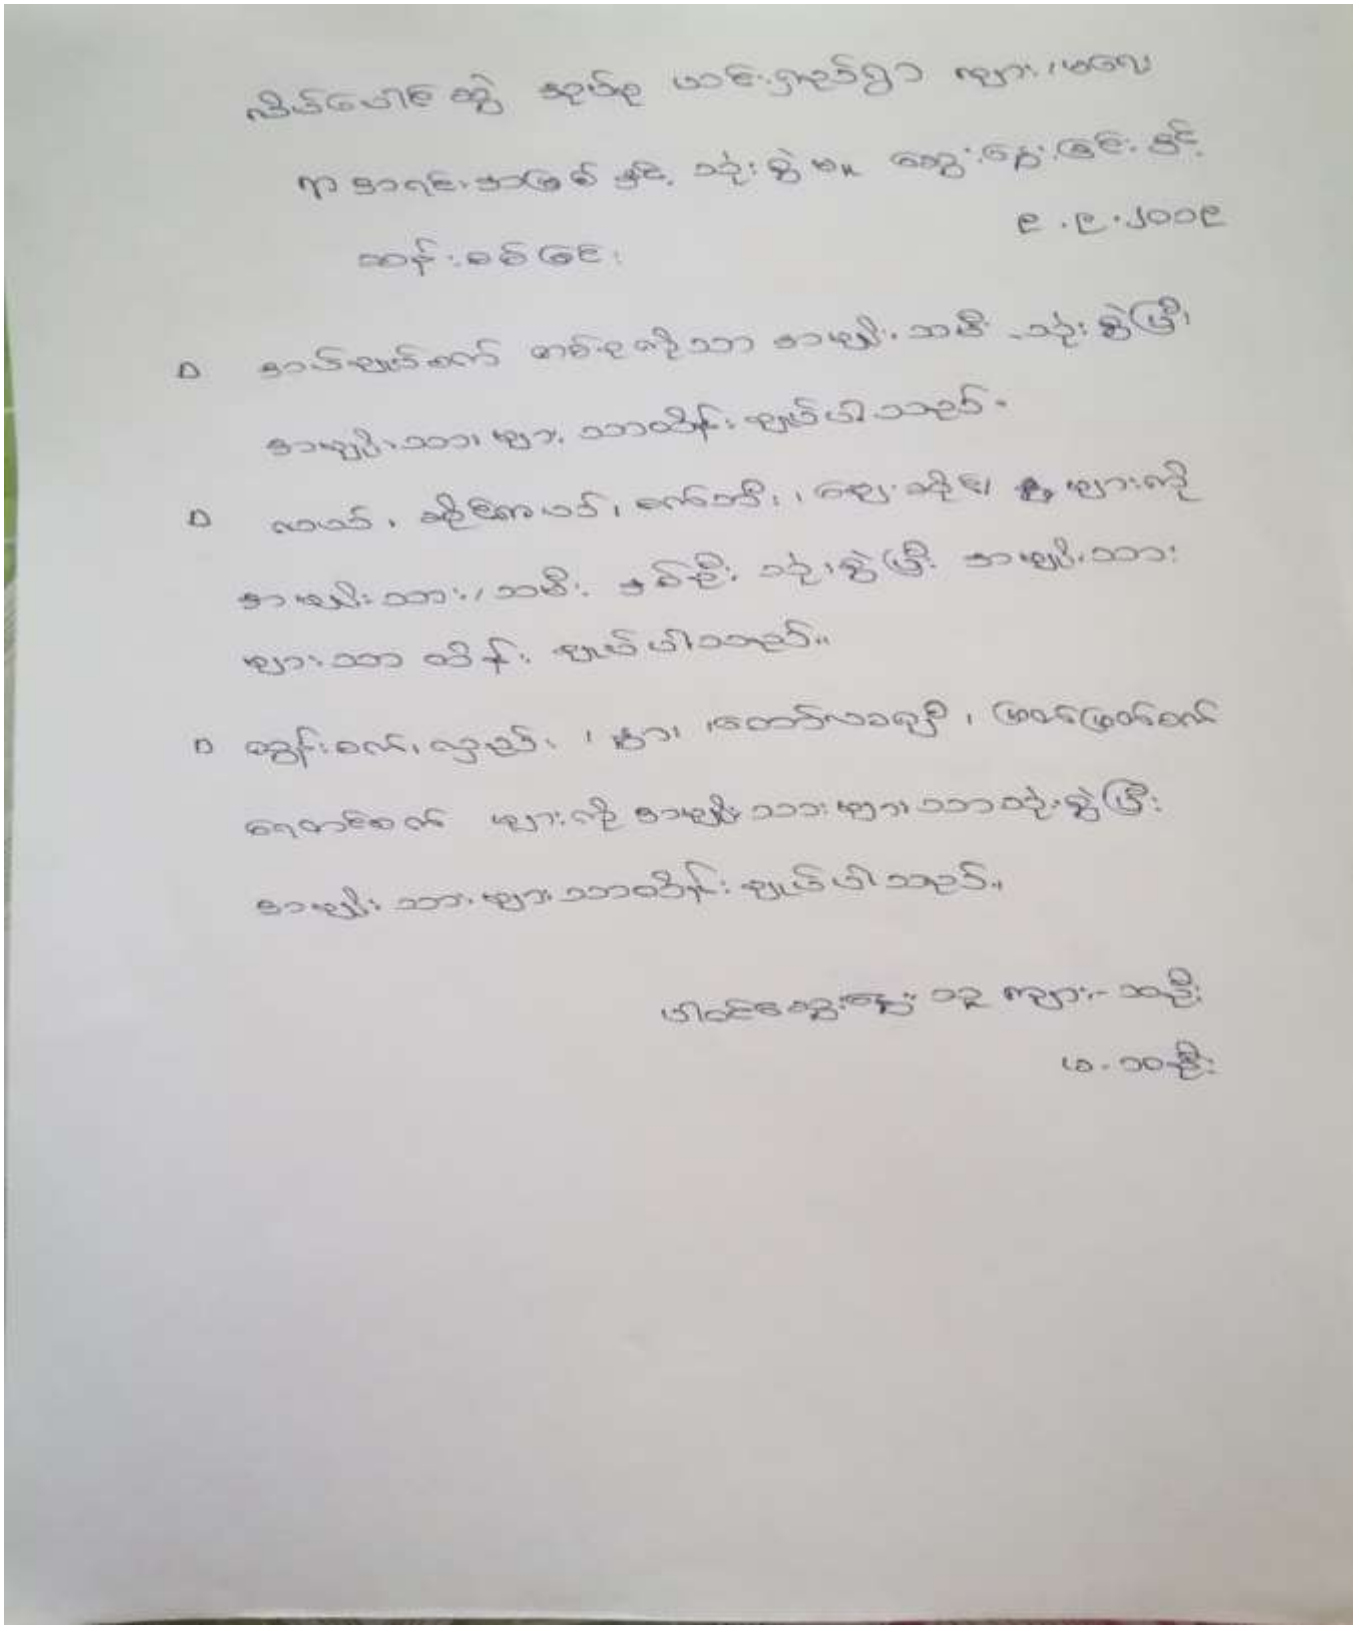 လိပ်ပေါင်တွဲ အုပ်စု ပသင်းဂူညှပ်ရွာ ကျား/မလေ့
လာ စာရင်းအဖြစ် နှင့် သုံးစွဲမှု ဆွေးနွေးခြင်း နှင့်
ဆန်းစစ်ခြင်း ၉.၉.၂၀၁၉
▷ အပ်ချုပ်စက် တစ်ခုကိုသာ အမျိုးသမီး သုံးစွဲပြီး
အမျိုးသားများ သာထိန်းချုပ်ပါသည်။
▷ လယ်၊ ဆိုင်ကယ်၊ စက်ဘီး၊ ဈေးဆိုင် များကို
အမျိုးသား/သမီး နှစ်ဦး သုံးစွဲပြီး အမျိုးသား
များသာ ထိန်းချုပ်ပါသည်။
▷ ထွန်စက်၊ လှည်း၊ နွား၊ တော်လာဂျီ၊ မြက်ဖြတ်စက်
ရေတင်စက် များကို အမျိုးသားများသာသုံးစွဲပြီး
အမျိုးသားများသာထိန်းချုပ်ပါသည်။
ပါဝင်ဆွေးနွေးသူ ကျား-၁ဦး
မ-၁၀ဦး